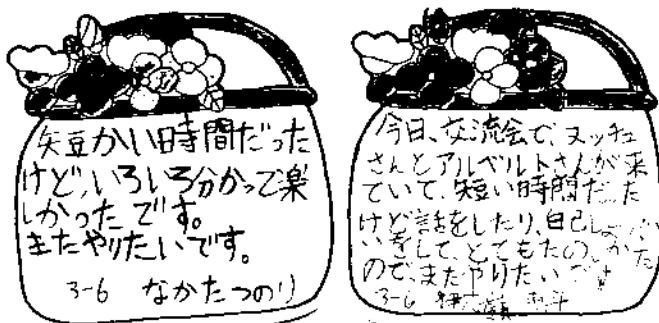 短かい時間だった
けど、いろいろ分かって楽
しかったです。
またやりたいです。
3-6 なかたつのり
今日、交流会で、ヌッチェ
さんとアルベルトさんが来
ていて、短い時間だった
けど話をしたり、自己しょうか
いをして、とてもたのしかった
ので、またやりたいです
3-6